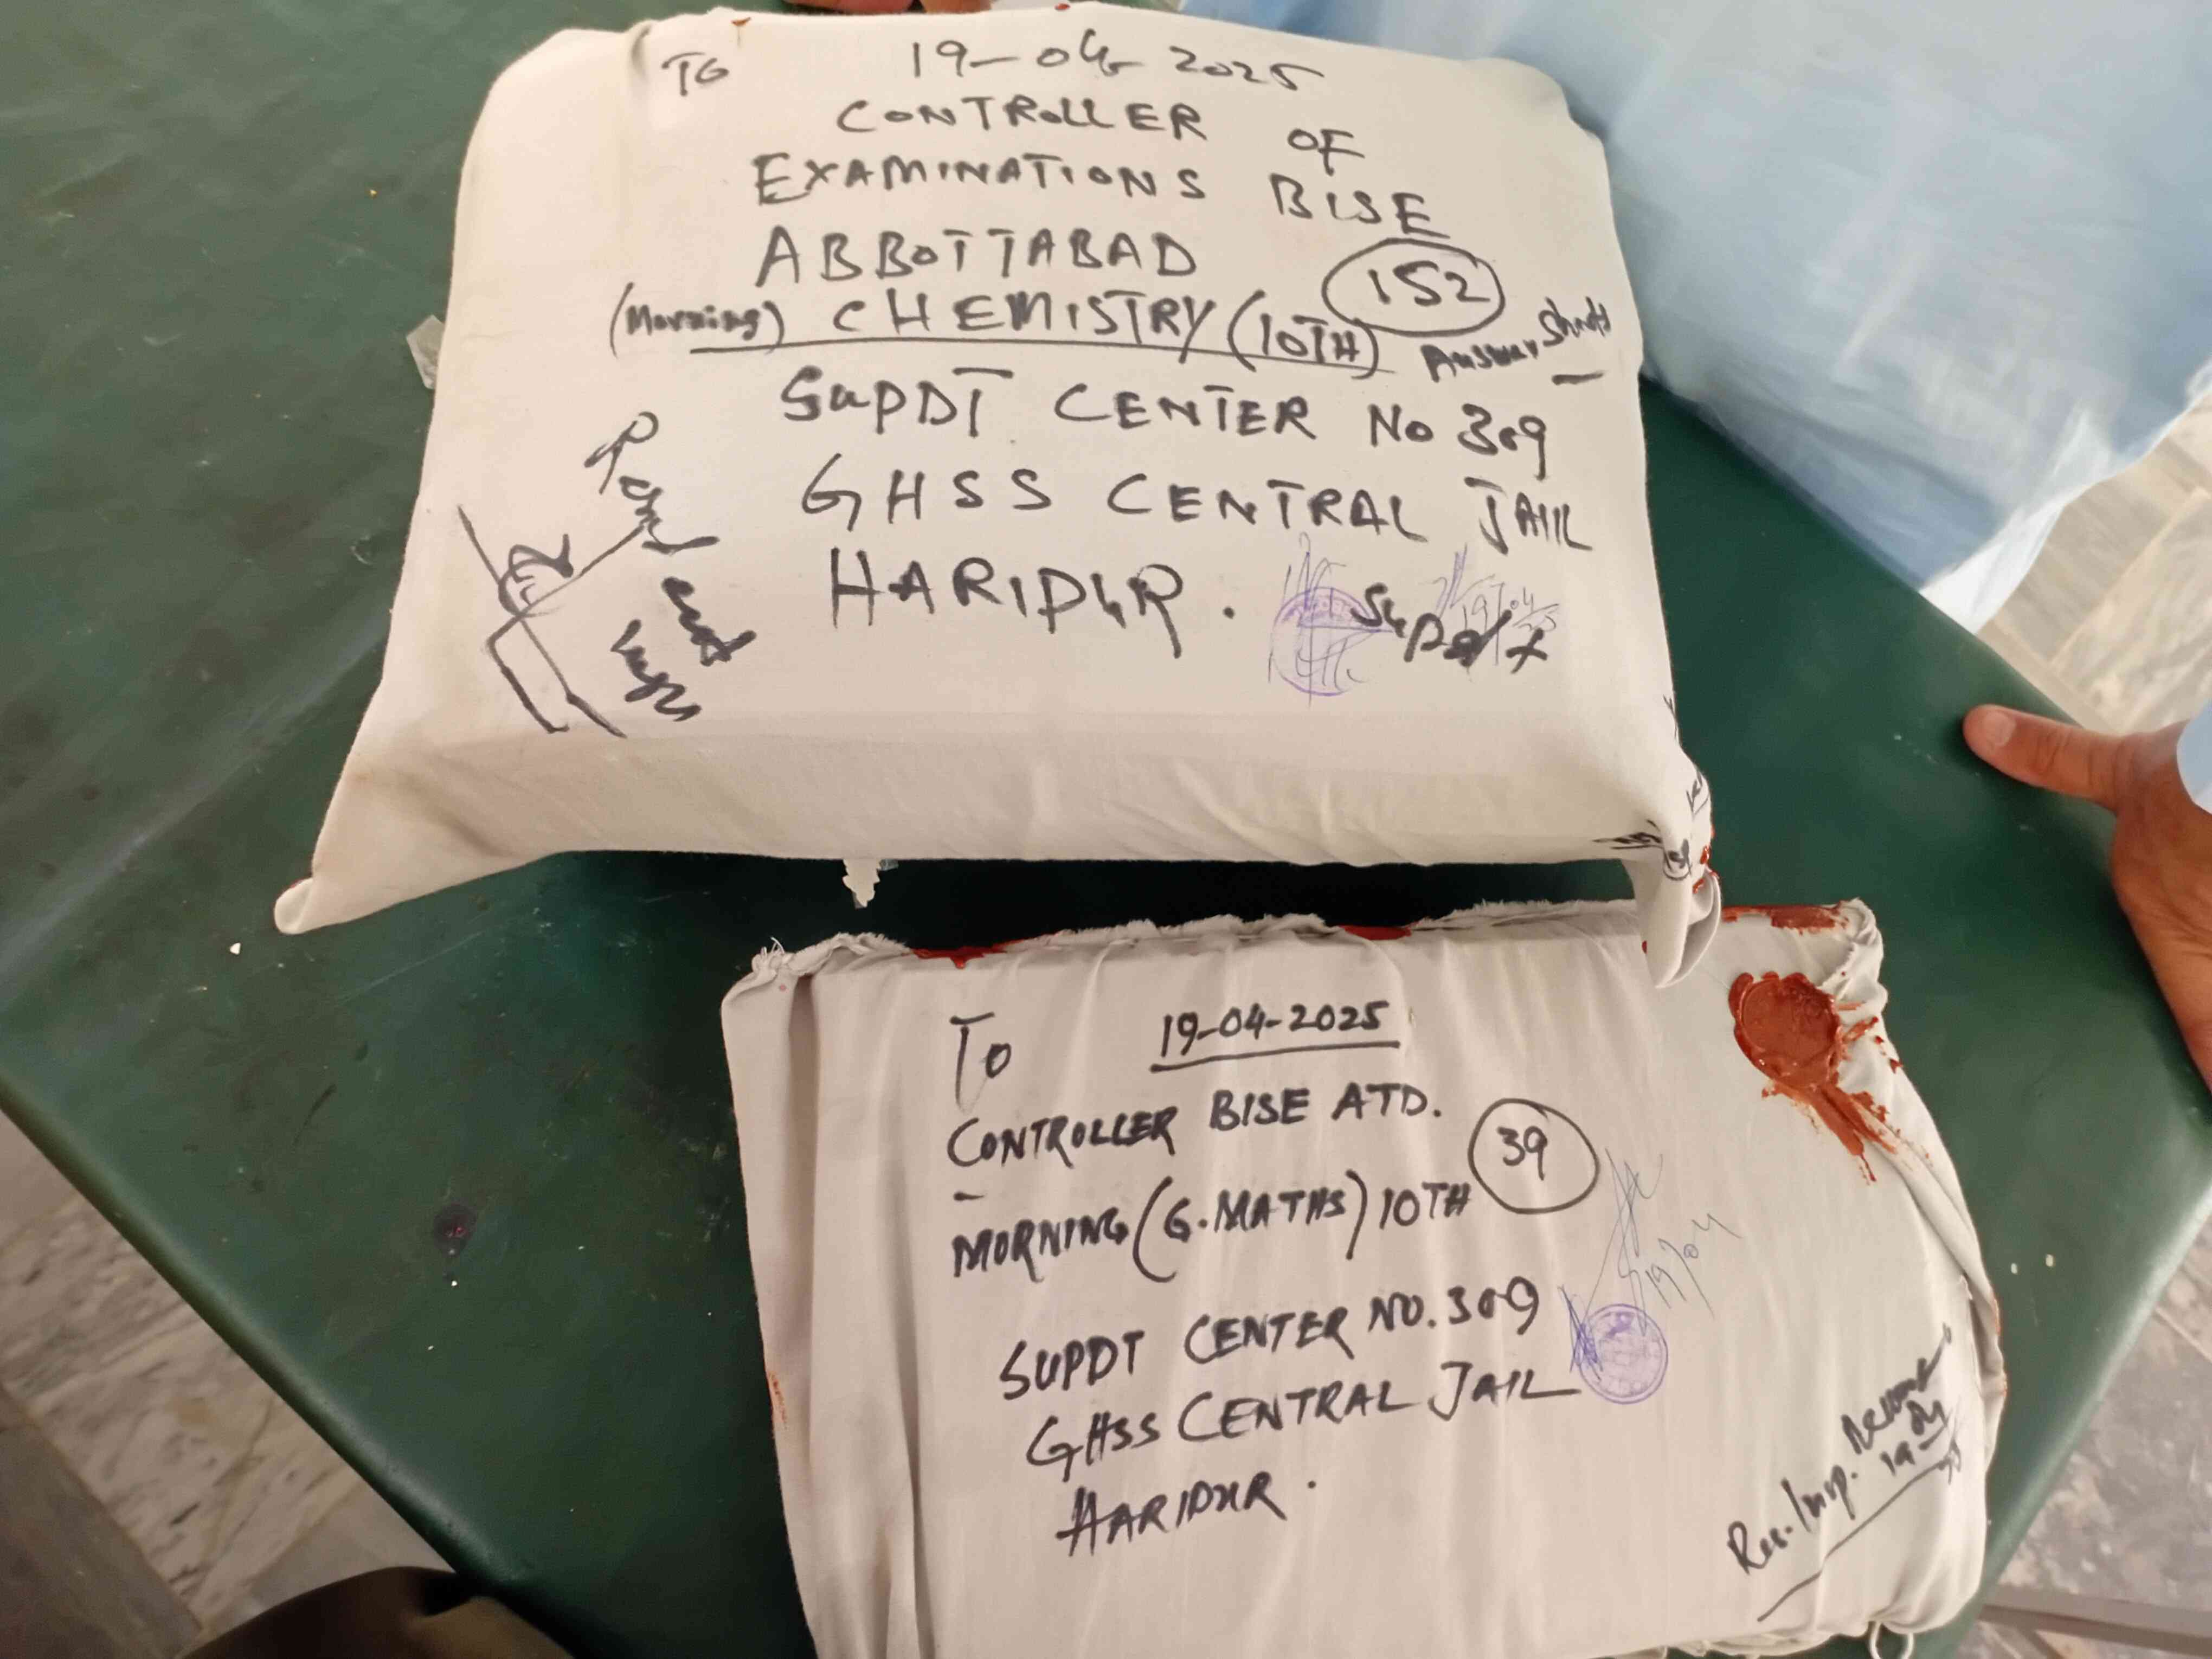 To 19-04-2025
CONTROLLER OF
EXAMINATIONS BISE
ABBOTTABAD
152
(Morning) CHEMISTRY (10TH) Answer
SUPDT CENTER No 309
GHSS CENTRAL JAIL
HARIPUR.
Supdt
19/04/25
To 19-04-2025
CONTROLLER BISE ATD.
39
MORNING (G.MATHS) 10TH
SUPDT CENTER NO. 309
GHSS CENTRAL JAIL
HARIPUR.
19/04
Res. Insp.
19/04